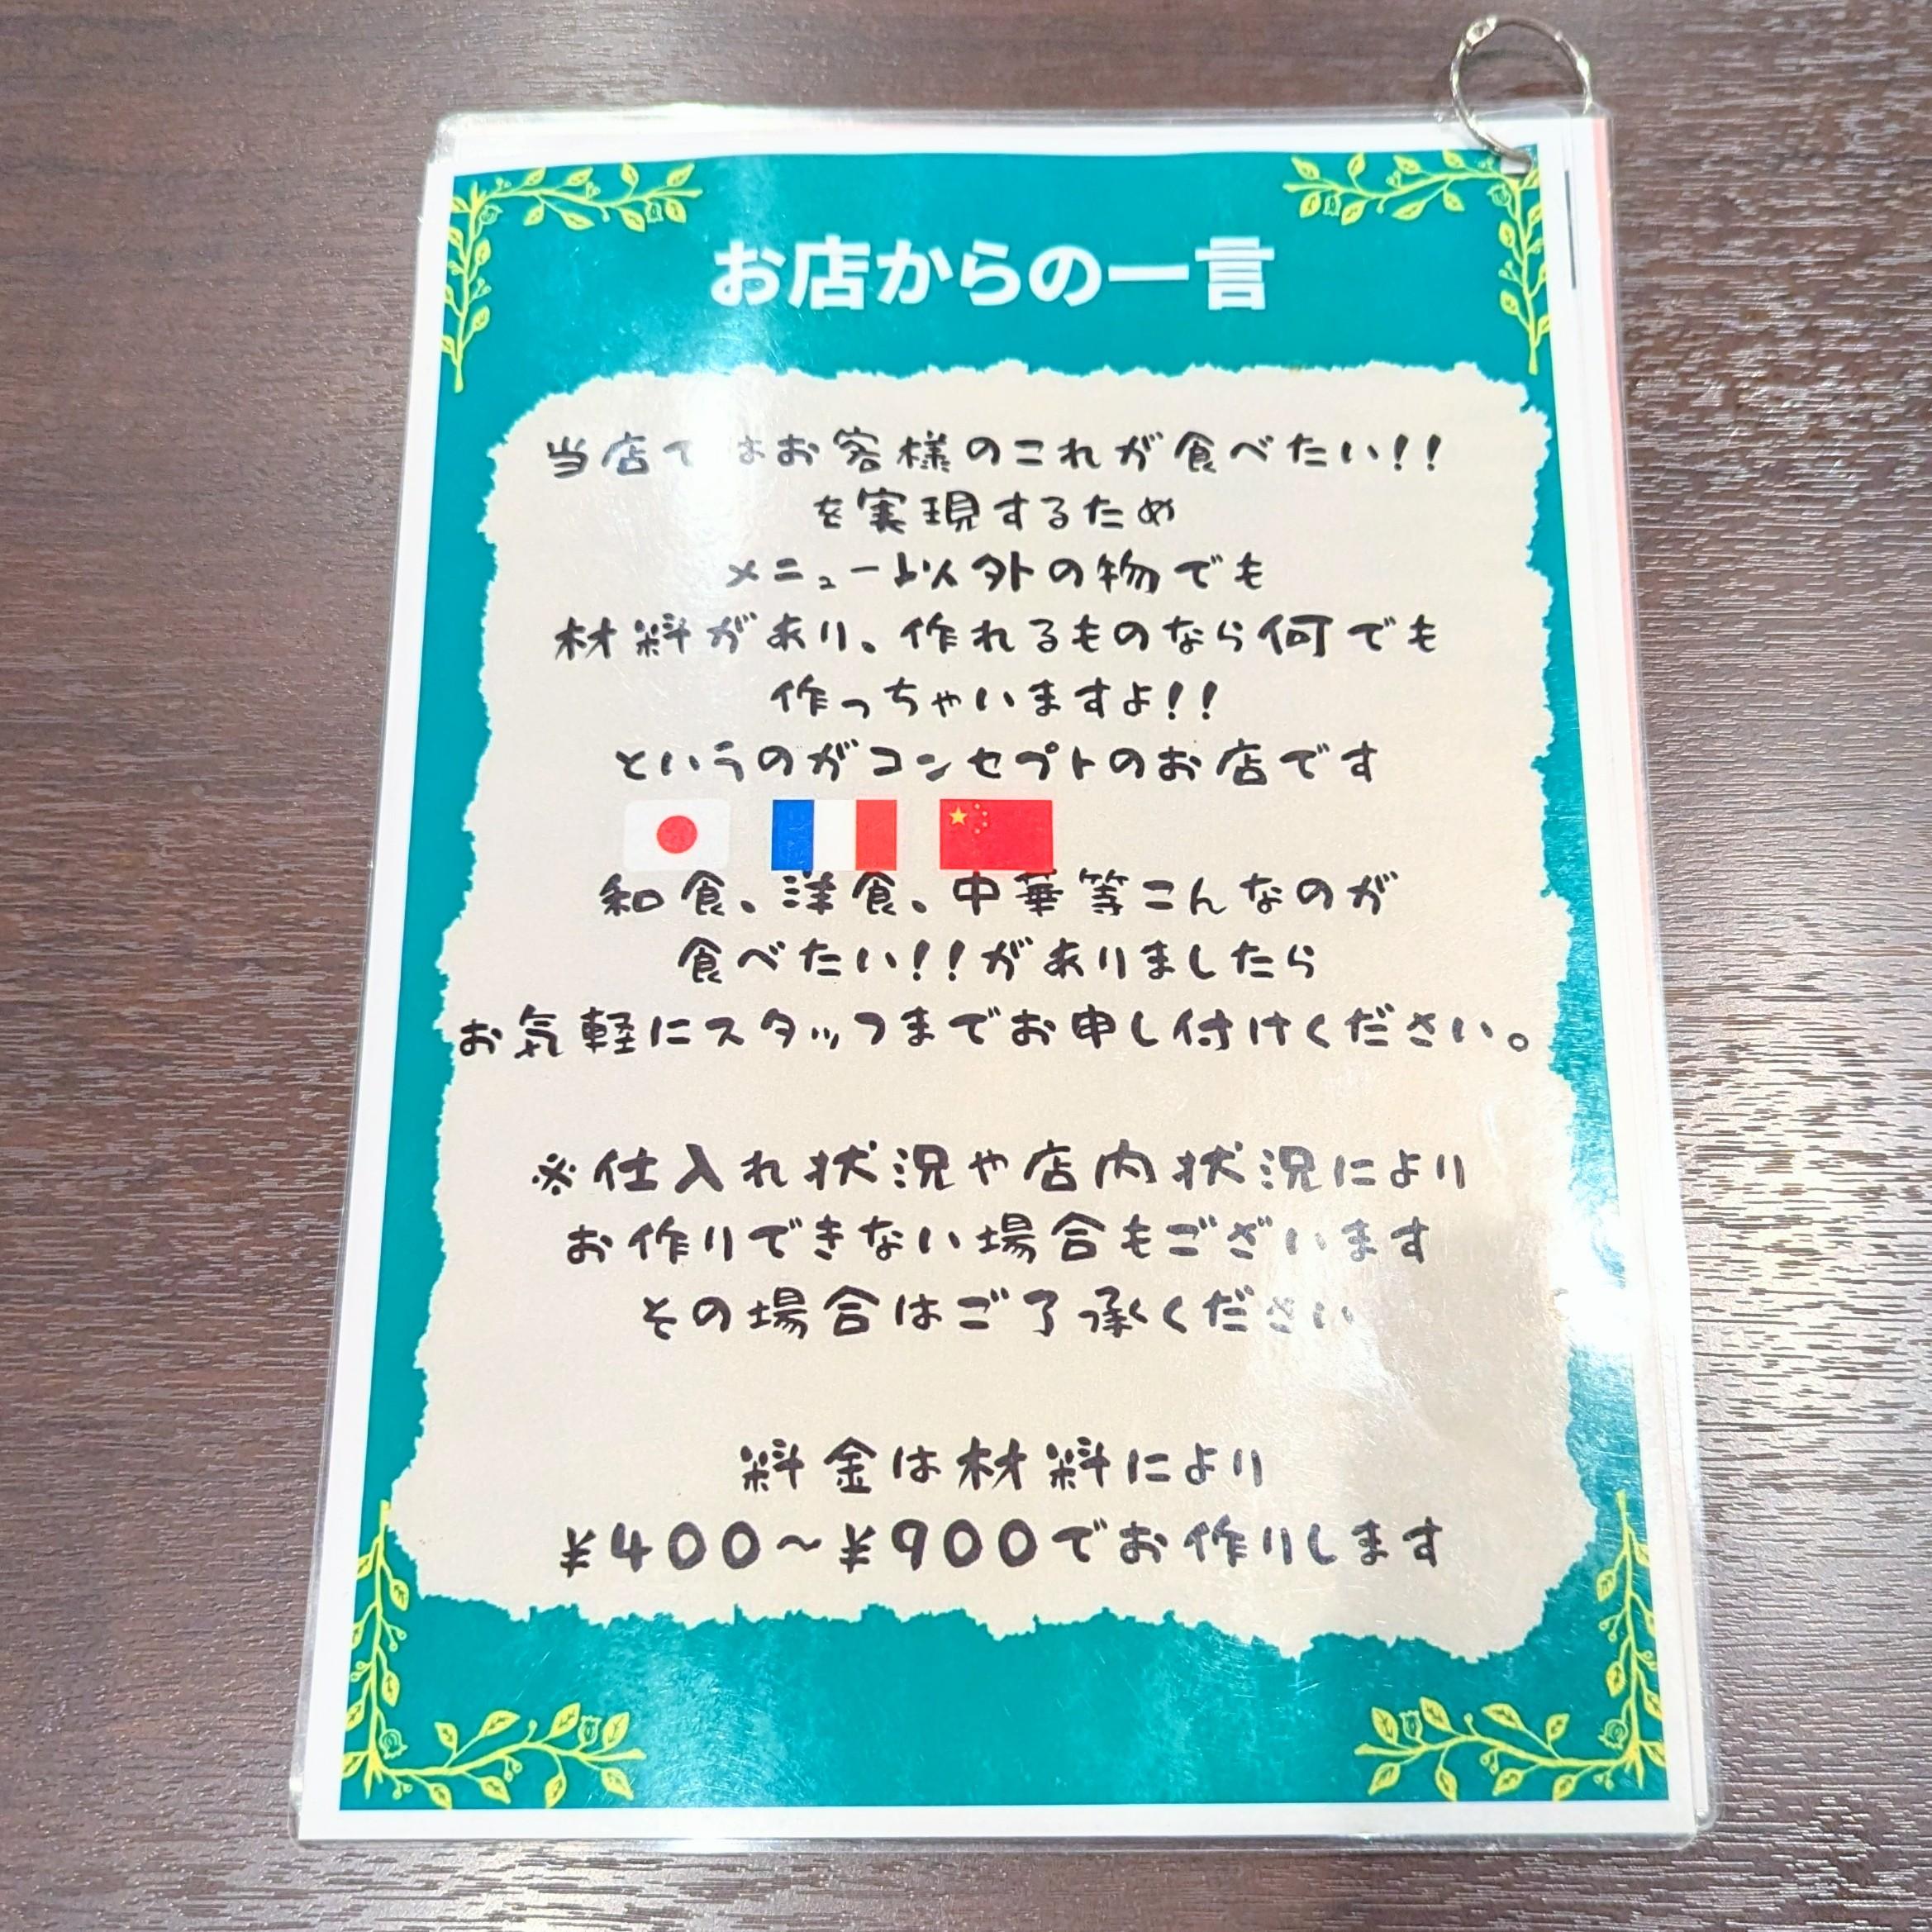 お店からの一言
当店ではお客様のこれが食べたい!!
を実現するため
メニュー以外の物でも
材料があり、作れるものなら何でも
作っちゃいますよ!!
というのがコンセプトのお店です
和食、洋食、中華等こんなのが
食べたい!!がありましたら
お気軽にスタッフまでお申し付けください。
※仕入れ状況や店内状況により
お作りできない場合もございます
その場合はご了承ください
料金は材料により
¥400〜¥900でお作りします